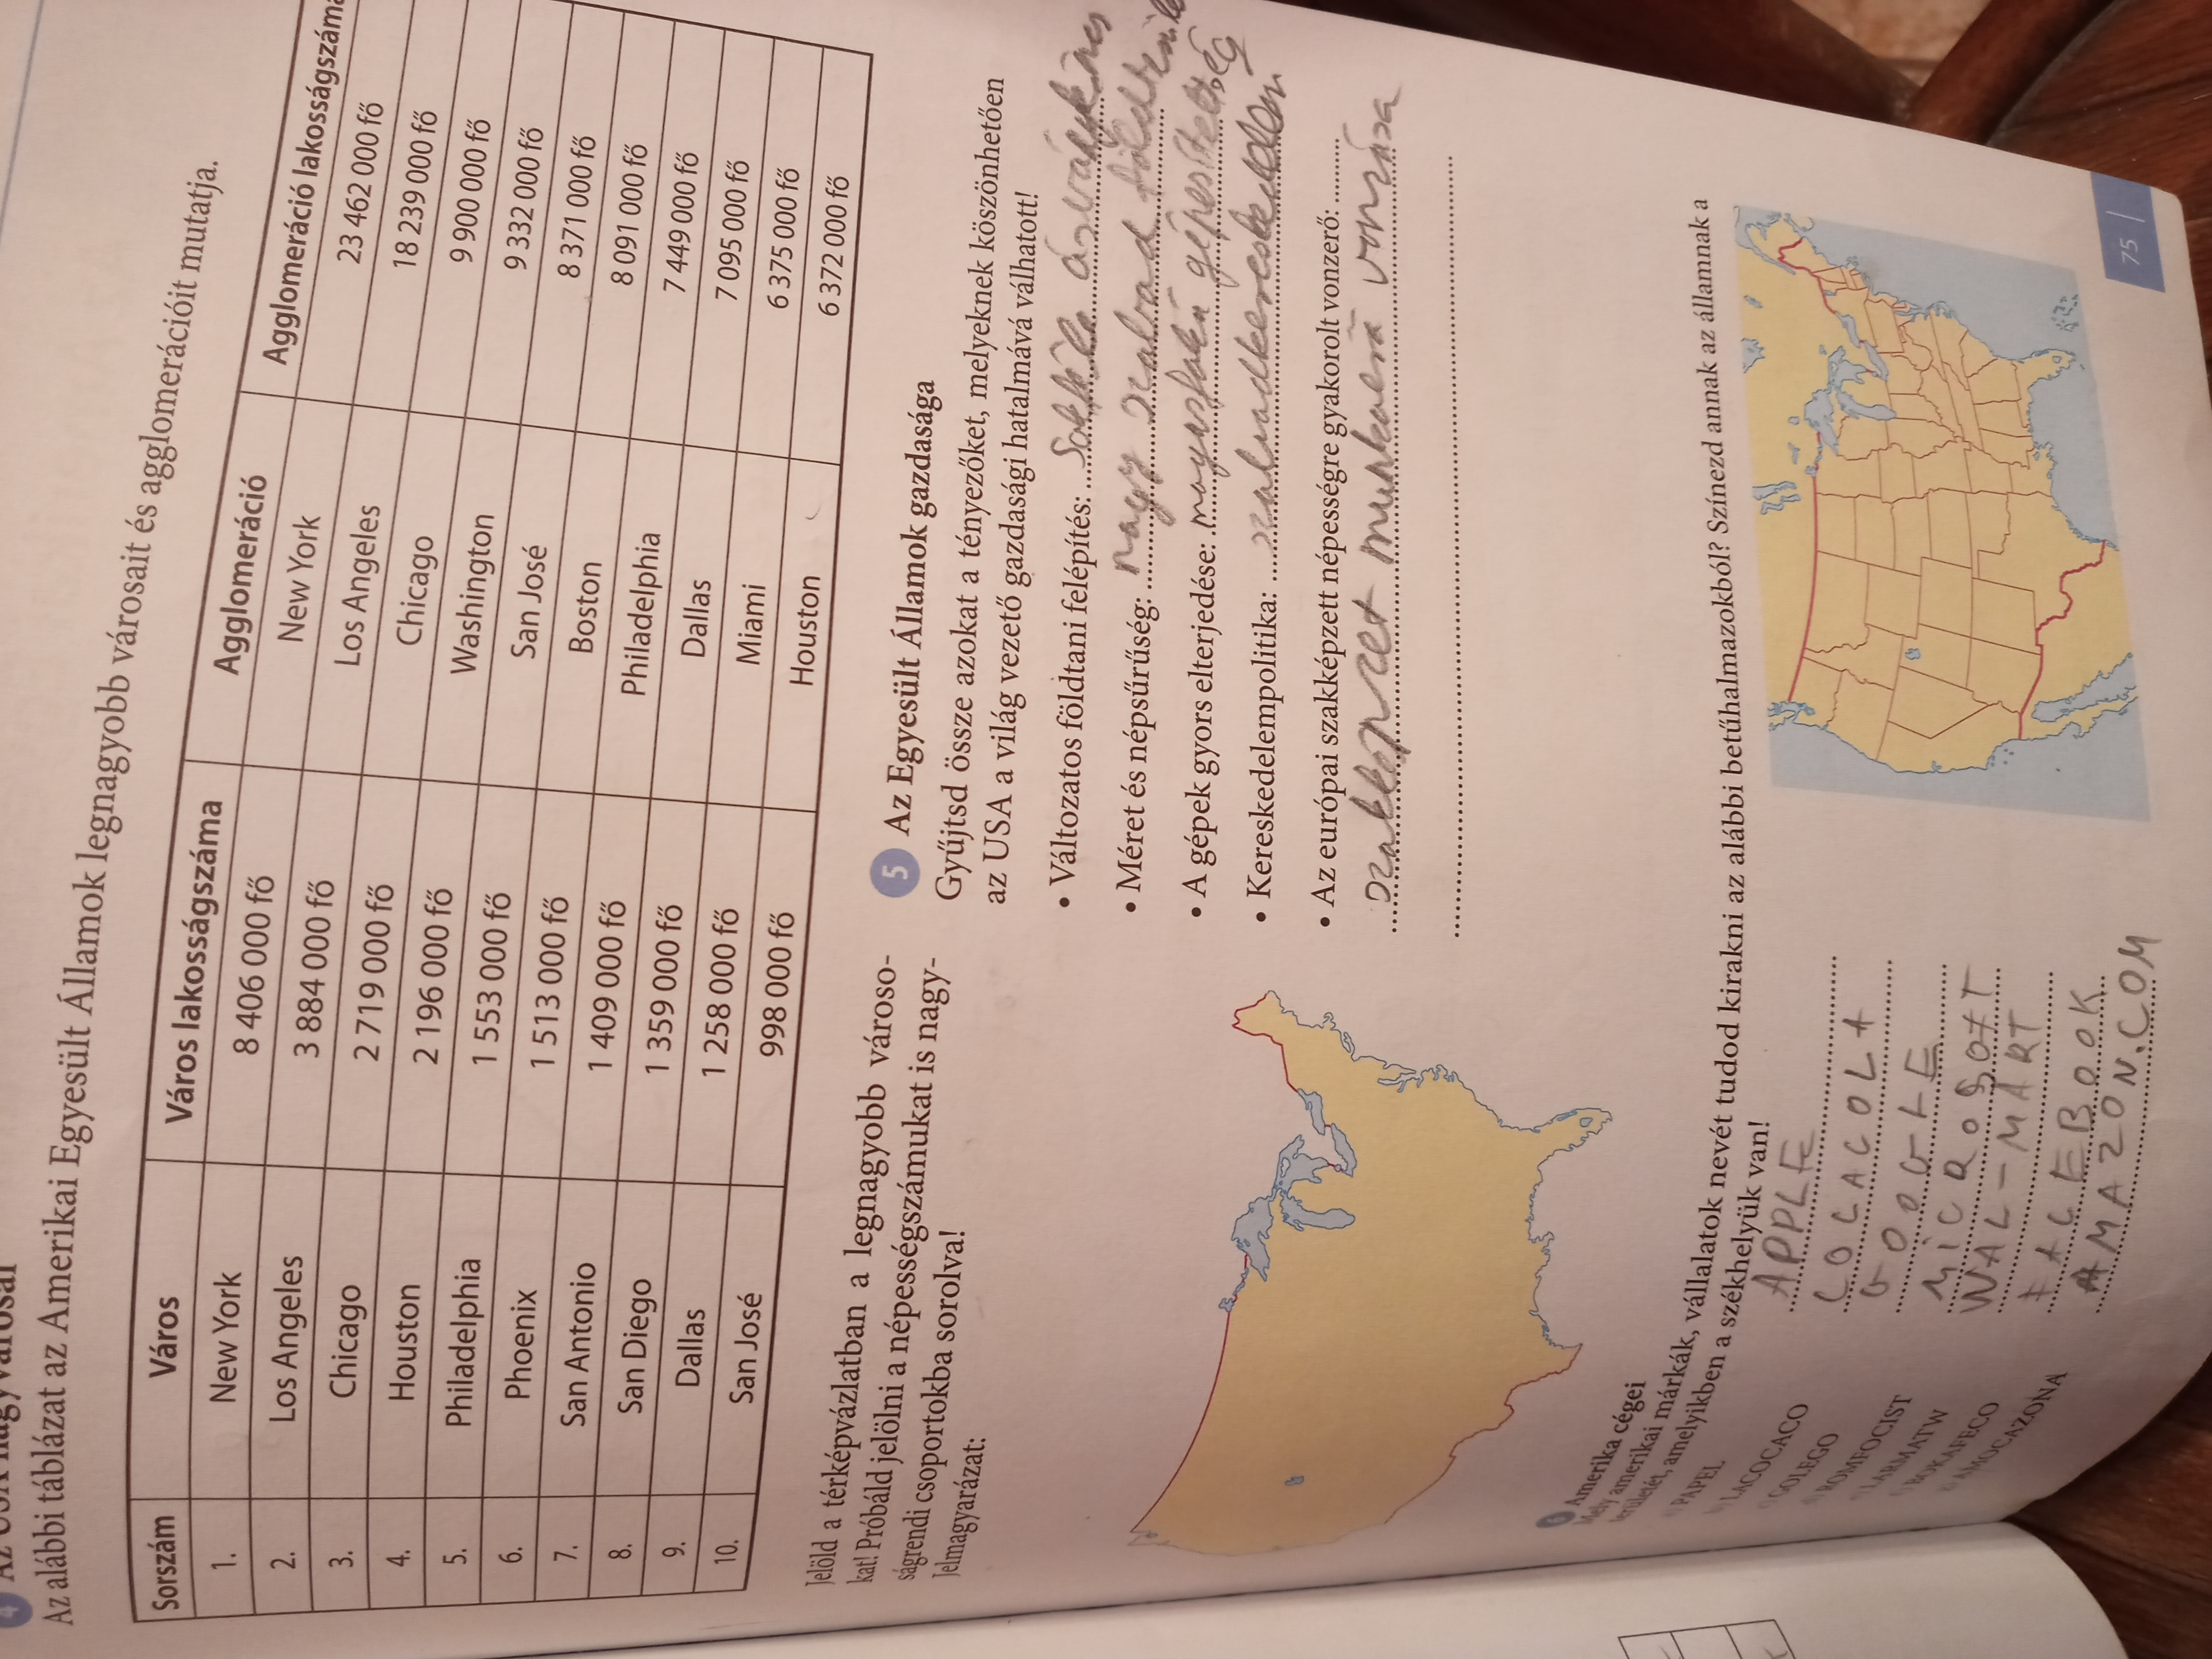 Az alábbi táblázat az Amerikai Egyesült Államok legnagyobb városait és agglomerációit mutatja.
Sorszám Város Város lakosságszáma Agglomeráció Agglomeráció lakosságszáma
1. New York 8 406 000 fő New York 23 462 000 fő
2. Los Angeles 3 884 000 fő Los Angeles 18 239 000 fő
3. Chicago 2 719 000 fő Chicago 9 900 000 fő
4. Houston 2 196 000 fő Washington 9 332 000 fő
5. Philadelphia 1 553 000 fő San José 8 371 000 fő
6. Phoenix 1 513 000 fő Boston 8 091 000 fő
7. San Antonio 1 409 000 fő Philadelphia 7 449 000 fő
8. San Diego 1 359 000 fő Dallas 7 095 000 fő
9. Dallas 1 258 000 fő Miami 6 375 000 fő
10. San José 998 000 fő Houston 6 372 000 fő
Jelöld a térképvázlatban a legnagyobb városo-
kat! Próbáld jelölni a népességszámukat is nagy-
ságrendi csoportokba sorolva!
Jelmagyarázat:
5 Az Egyesült Államok gazdasága
Gyűjtsd össze azokat a tényezőket, melyeknek köszönhetően
az USA a világ vezető gazdasági hatalmává válhatott!
• Változatos földtani felépítés: Sokféle ásványkincs
• Méret és népsűrűség: nagy szabad
• A gépek gyors elterjedése: magasfokú gépesítettség
• Kereskedelempolitika: szabadkereskedelem
• Az európai szakképzett népességre gyakorolt vonzerő:
szakképzet munkaerő vonzása
6 Amerika cégei
Mely amerikai márkák, vállalatok nevét tudod kirakni az alábbi betűhalmazokból? Színezd annak az államnak a
területét, amelyikben a székhelyük van!
PAPEL APPLE
LACOCACO COCACOLA
GOLEGO GOOGLE
ROMFOCIST MiCROSOFT
LARMATW WAL-MART
BOKAFECO FACEBOOK
AMOCAZONA AMAZON.COM
75